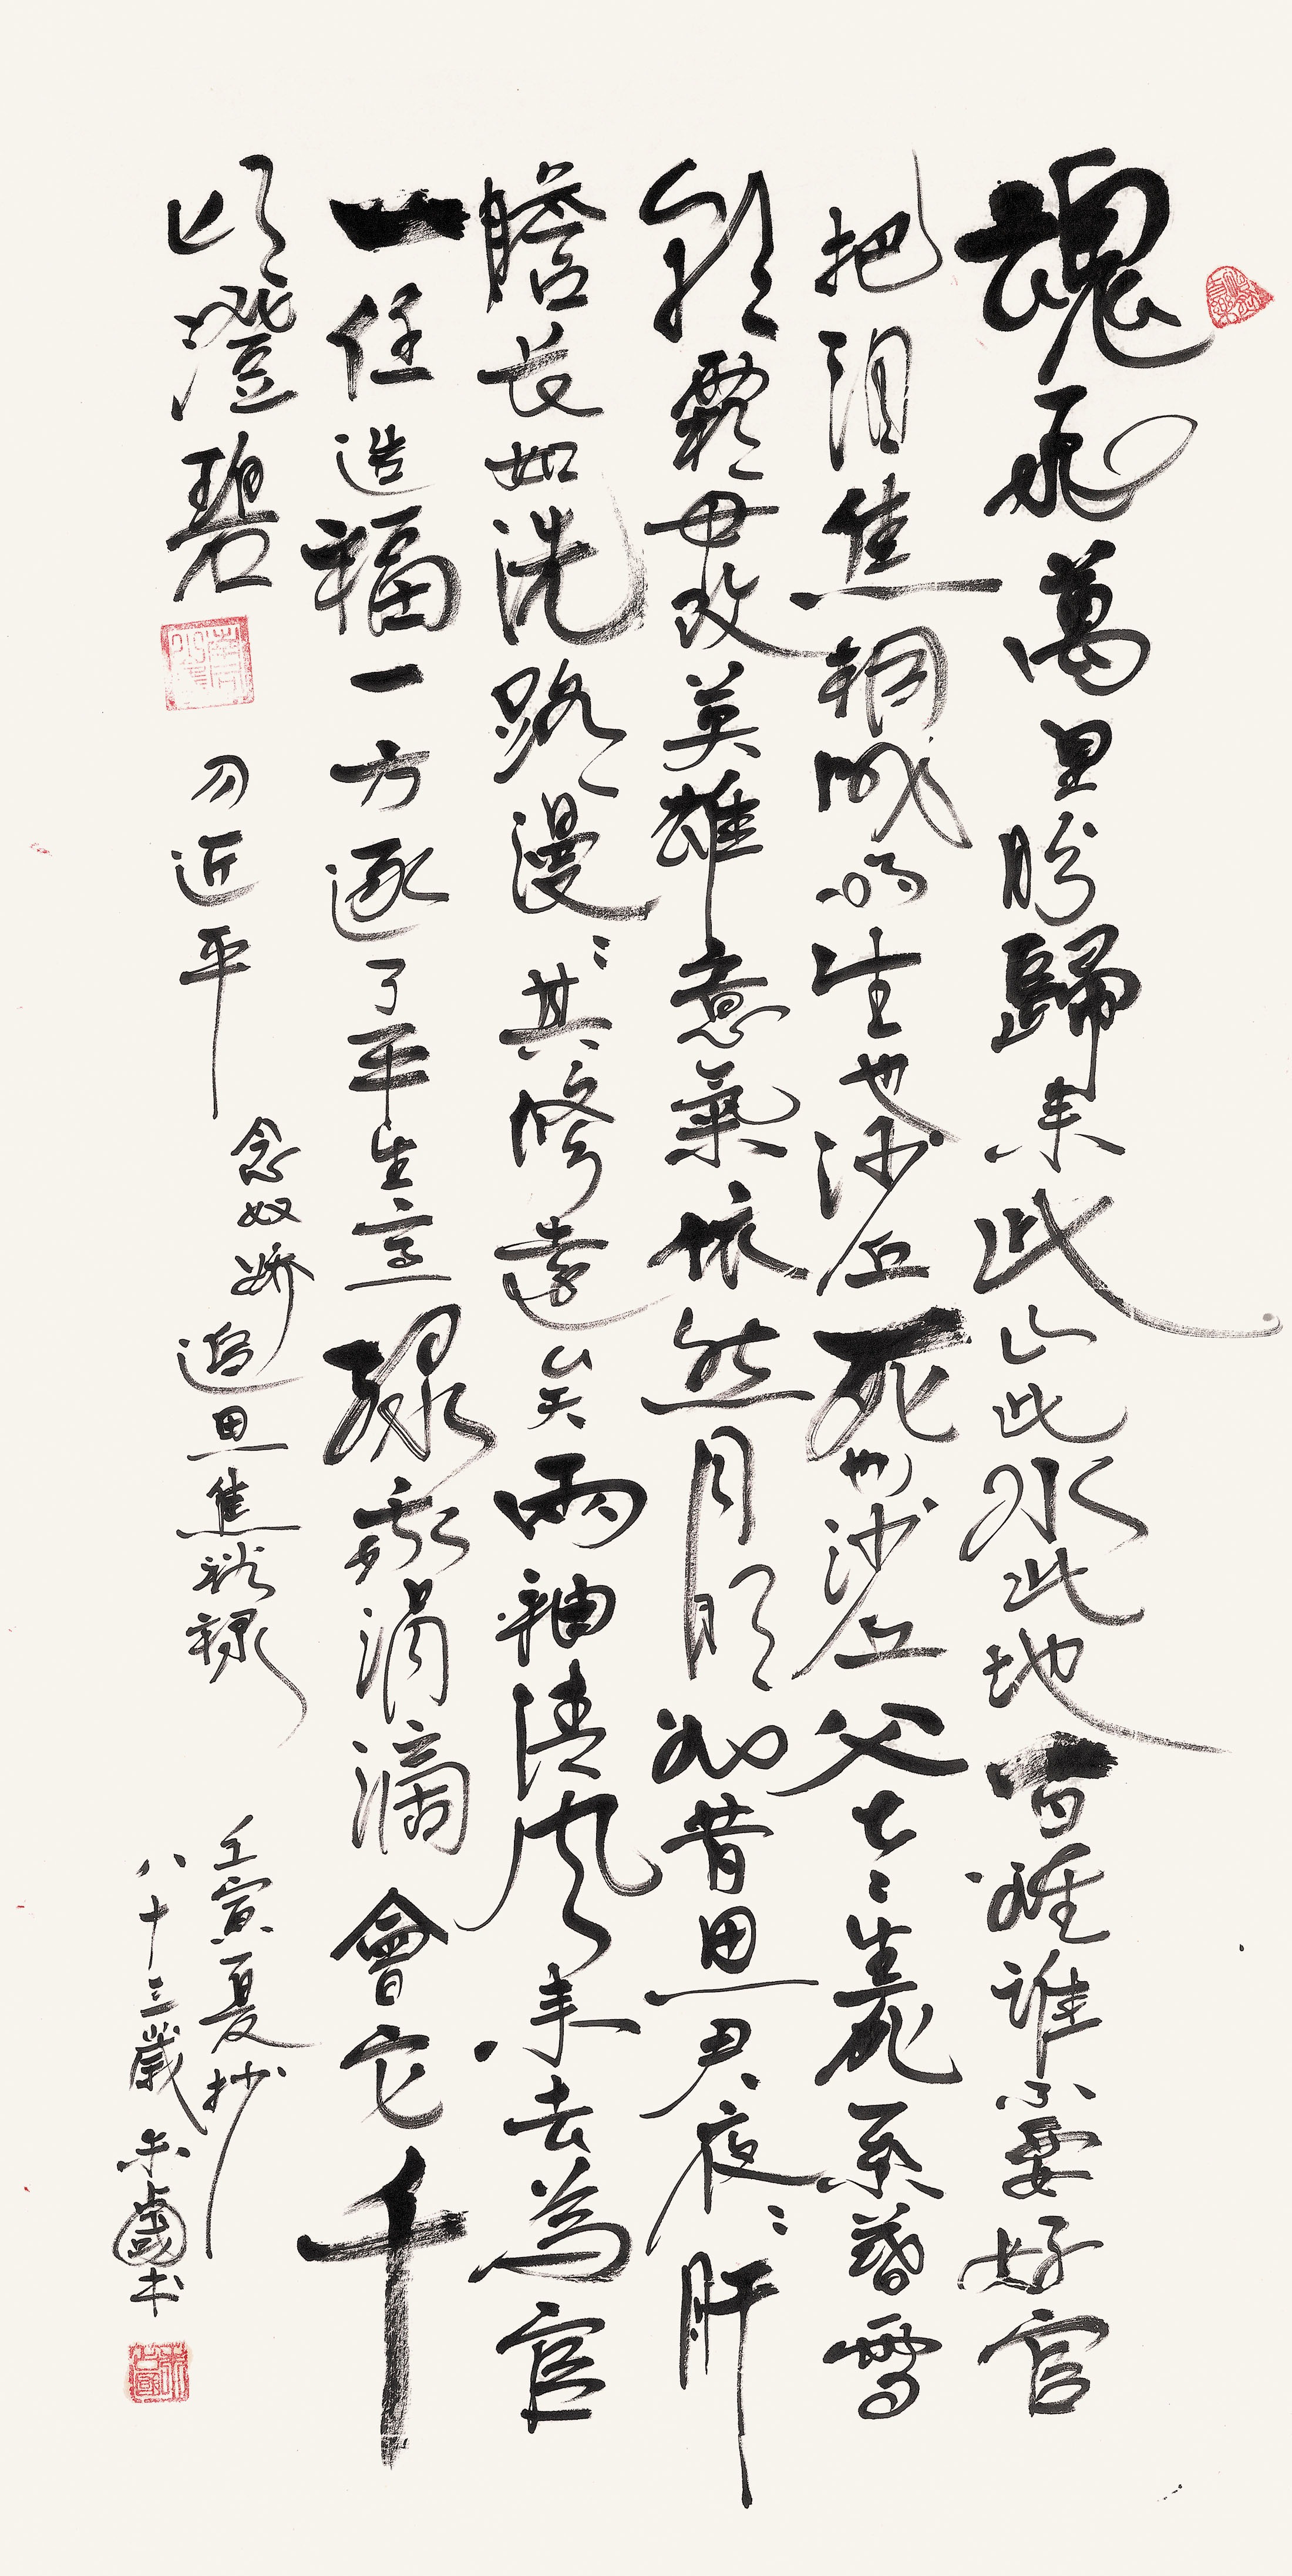 魂飛萬里盼歸来此山此水此地百姓誰不愛好官
把淚焦桐成雨生也沙丘死也沙丘父老〻生死系暮雪
朝霜毋改英雄意氣依然月明如昔思君夜〻肝
膽長如洗路漫〻其修遠矣兩袖清風来去為官
一任造福一方遂了平生意綠我涓滴會它千
頃澄碧
习近平
念奴嬌
追思焦裕祿
壬寅夏抄
八十三歲